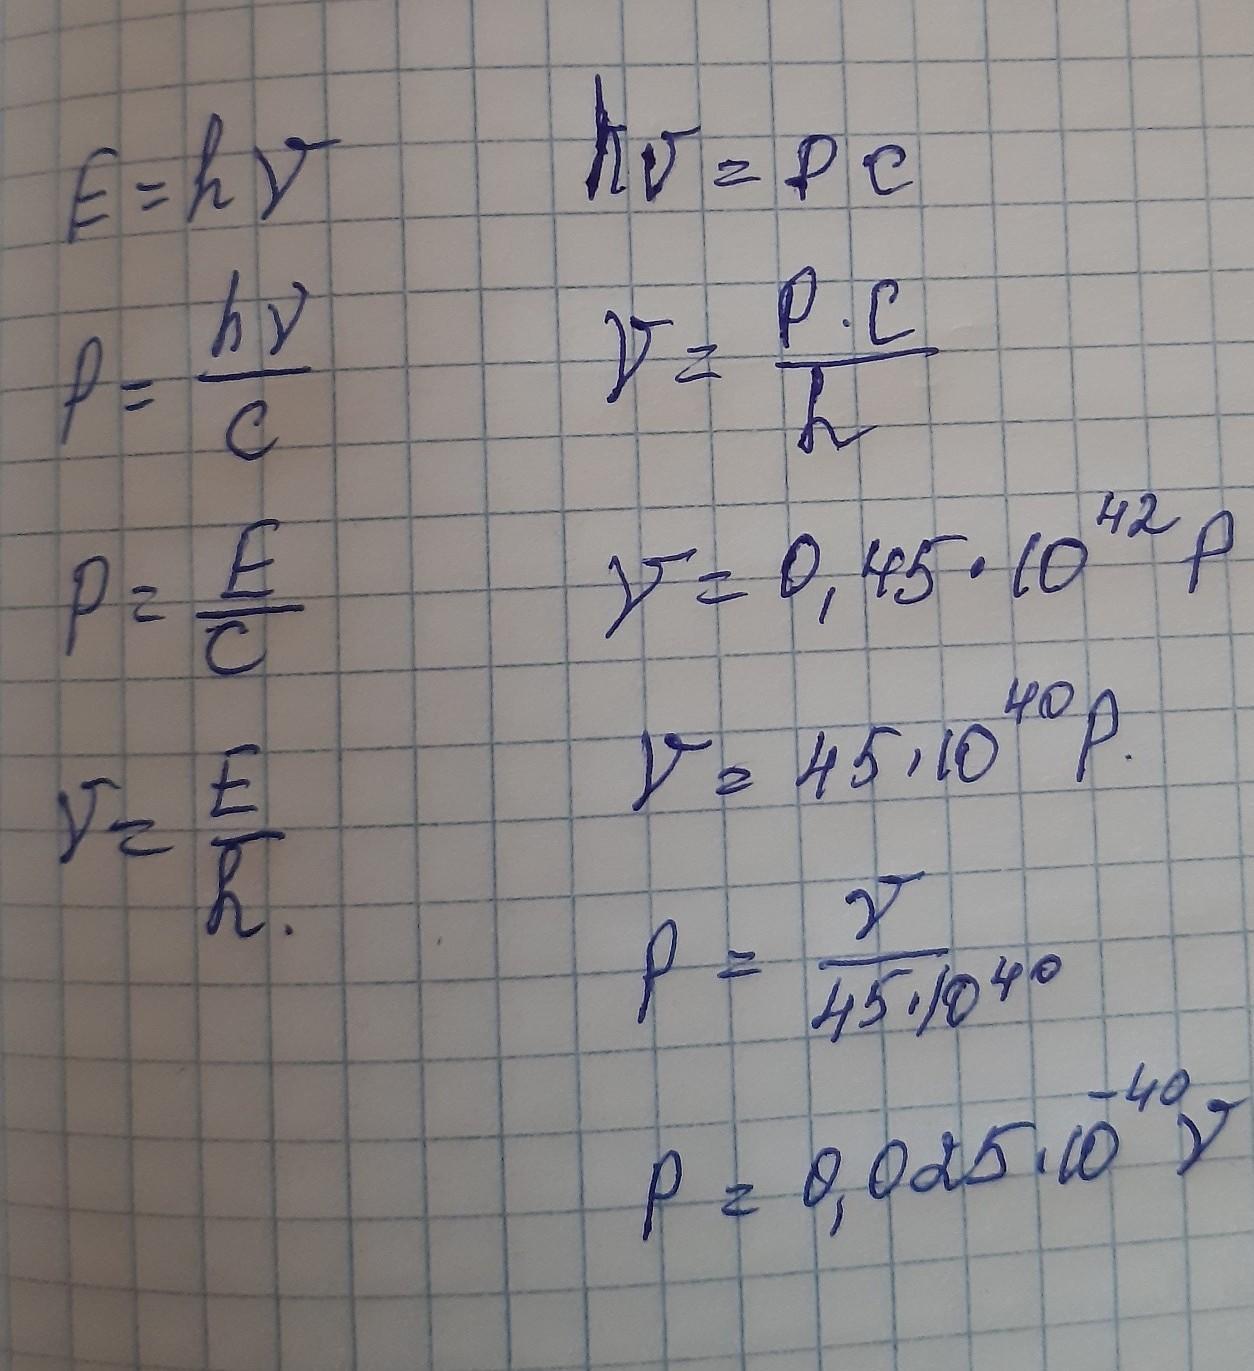 E = hν
p = hν/c
p = E/c
ν = E/h.
hν = p c
ν = p · c/h
ν = 0,45 · 10^42 p
ν = 45 · 10^40 p.
p = ν/45 · 10^40
p = 0,025 · 10^-40 ν